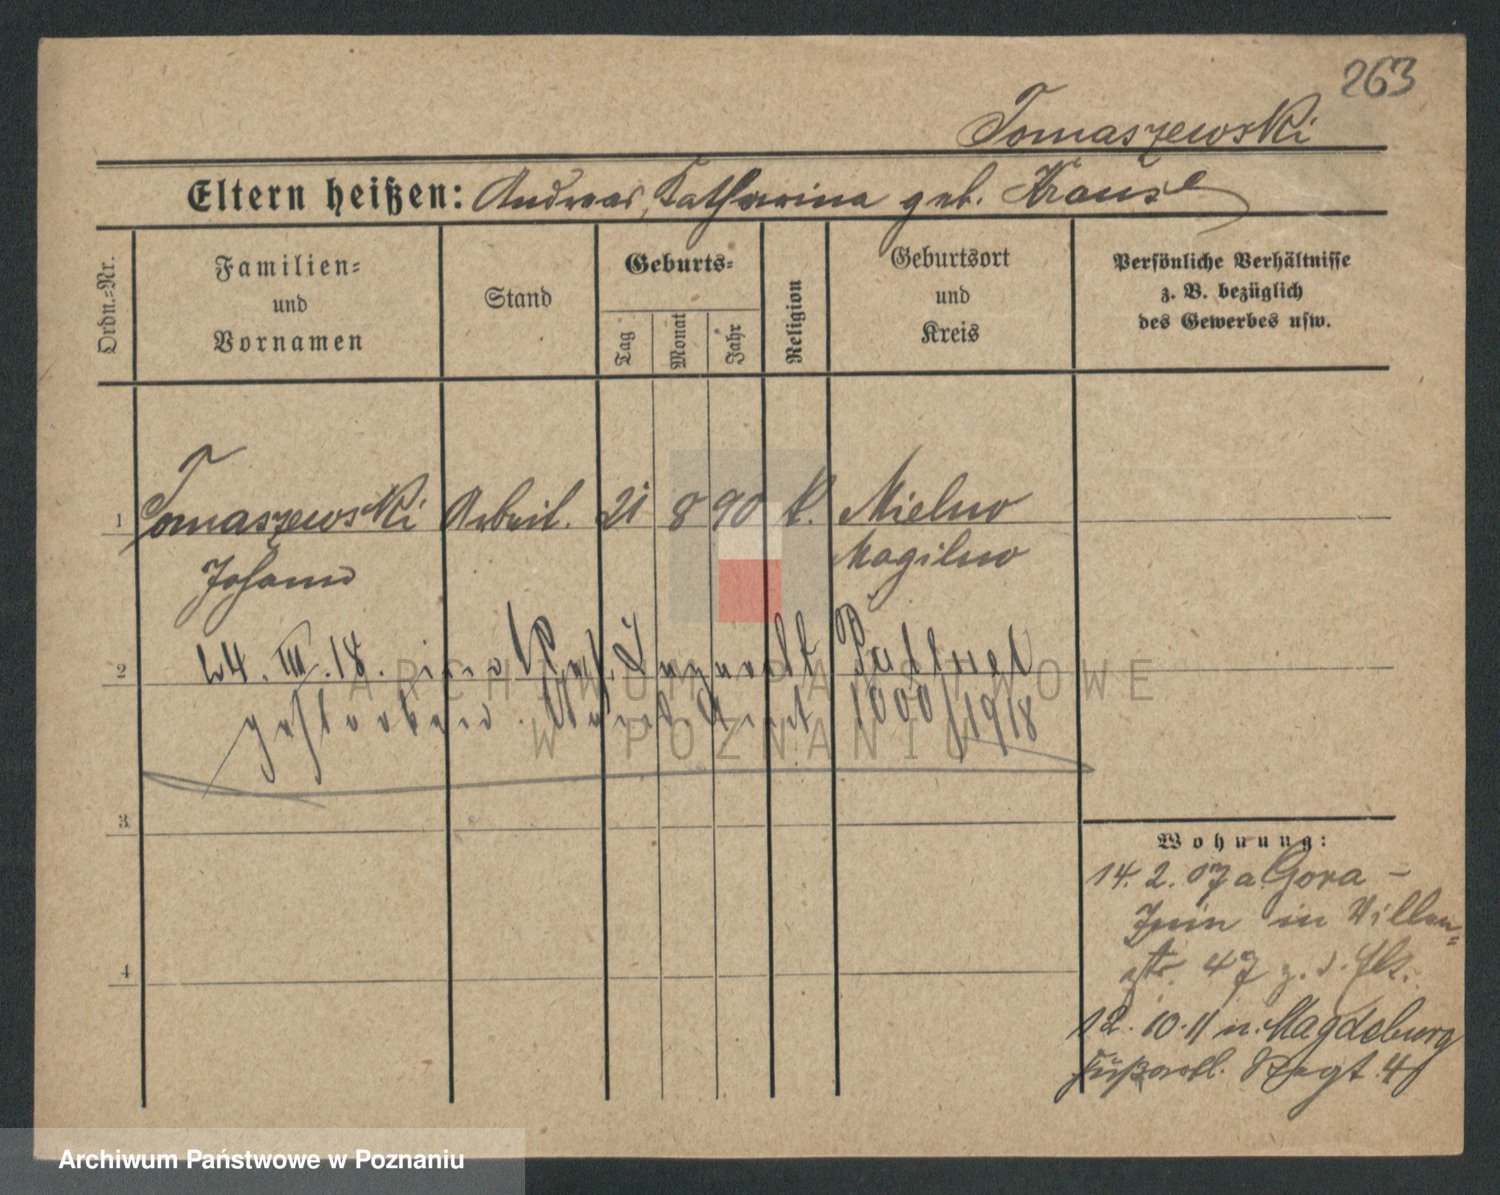 263
Tomaszewski
Eltern heißen: Andreas, Katharina geb. Krause
Ordn.-Nr.
Familien-
und
Vornamen
Stand
Geburts-
Tag
Monat
Jahr
Religion
Geburtsort
und
Kreis
Persönliche Verhältnisse
z. B. bezüglich
des Gewerbes usw.
1 Tomaszewski Arbeit. 21 8 90 k. Mielno
Johann Mogilno
2 24. III. 18. im Res.
gestorben. 1000/1918
3
4
Wohnung:
14. 2. 07 a Gora -
Znin in Villen-
str. 47
12. 10. 11 n. Magdeburg
Fußartl. Regt. 4
ARCHIWUM PAŃSTWOWE
W POZNANIU
Archiwum Państwowe w Poznaniu